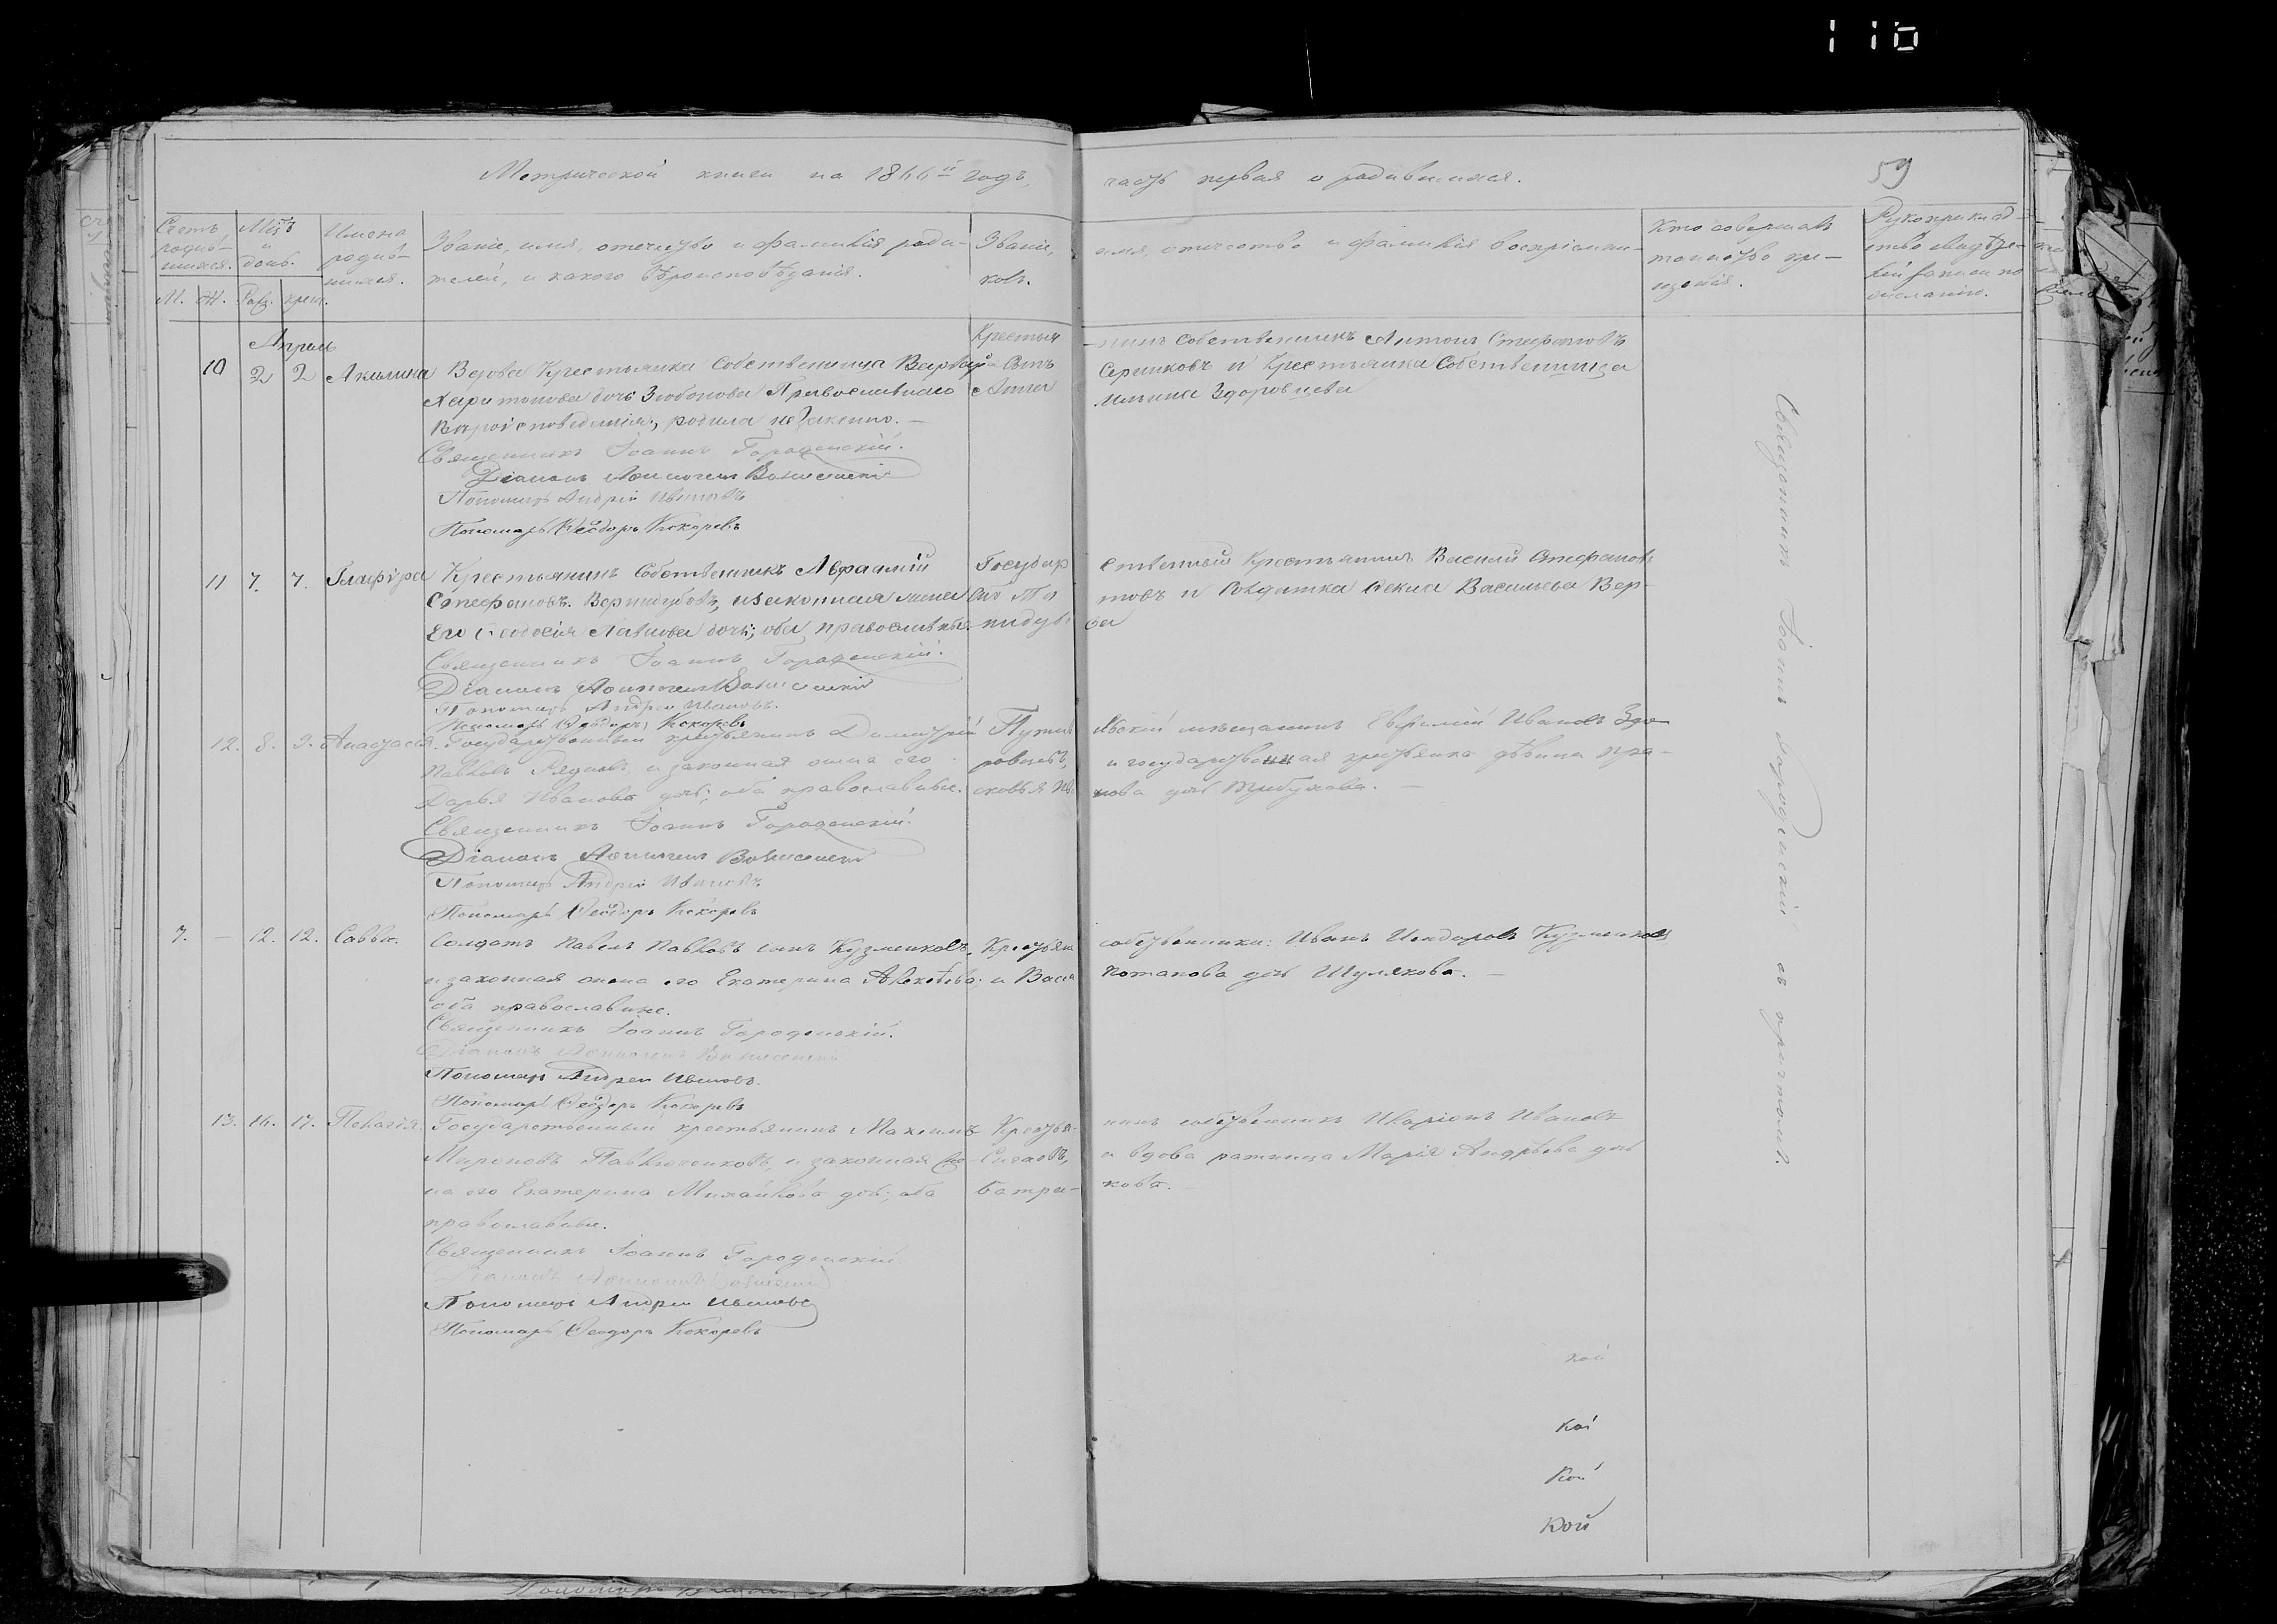 110
59
Метрической книги на 1866й годъ, часть первая о родившихся.
Счетъ родив-шихся.
М. Ж.
Мцъ и день.
Рожд. крещ.
Имена родив-шихся.
Званіе, имя, отечество и фамилія роди-
телей, и какого вѣроисповѣданія.
Званіе, имя, отечество и фамилія воспріемни-
ковъ.
Кто совершалъ
таинство кре-
щенія.
Рукоприклад-
ство свидѣте-
лей записи по
желанію.
Апрель
10 2 2 Акилина
Вдова Крестьянка Собственница Варвара
Харитонова дочь Злобонова Православнаго
Вѣроисповеданія, родила незаконно.
Священникъ Іоаннъ Городенскій.
Діаконъ Вознесенскій
Пономарь Андрей Ивановъ
Пономарь Ѳеодоръ Кокоревъ
Крестья-нинъ Собственникъ Антонъ Стефановъ
Сериковъ и Крестьянка Собственница
Анна Ильина Здоровцева
11 7. 7. Глафира
Крестьянинъ Собственникъ Авраамій
Стефановъ Вернидубовъ, и законная жена
Его Ѳеодосія Павлова дочь; оба православные.
Священникъ Іоаннъ Городенскій.
Діаконъ Вознесенскій
Пономарь Андрей Ивановъ.
Пономарь Ѳеодоръ Кокоревъ
Государственный Крестьянинъ Василий Стефановъ
и Солдатка Ѳекла Васильева Вер-
нидубова
12. 8. 9. Анастасія.
Государственный крестьянинъ Димитрій
Павловъ Рядновъ, и законная жена его
Дарья Иванова дочь; оба православные.
Священникъ Іоаннъ Городенскій.
Діаконъ Вознесенскій
Пономарь Андрей Ивановъ
Пономарь Ѳеодоръ Кокоревъ
Путивльскій мѣщанинъ Евфимій Ивановъ Здо-
ровцевъ, и государственная крестьянка дѣвица Пра-
сковья Иванова дочь Трибунова.
7. - 12. 12. Савва.
Солдатъ Павелъ Павловъ сынъ Кузменковъ,
и законная жена его Екатерина Алексѣева;
оба православные.
Священникъ Іоаннъ Городенскій.
Діаконъ Вознесенскій
Пономарь Андрей Ивановъ.
Пономарь Ѳеодоръ Кокоревъ
Крестьяне собственники: Иванъ Исидоровъ Кузменковъ
и Васса Потапова дочь Шулякова.
13. 16. 17. Пелагія.
Государственный крестьянинъ Максимъ
Мироновъ Павлюченковъ, и законная же-
на его Екатерина Михайлова дочь; оба
православные.
Священникъ Іоаннъ Городенскій
Діаконъ Вознесенскій
Пономарь Андрей Ивановъ
Пономарь Ѳеодоръ Кокоревъ
Крестья-нинъ собственникъ Иларіонъ Ивановъ
и вдова ратница Марія Андрѣева дочь
Батра-кова.
Священникъ Іоаннъ Городенскій съ причтомъ.
кой
кой
кой
кой